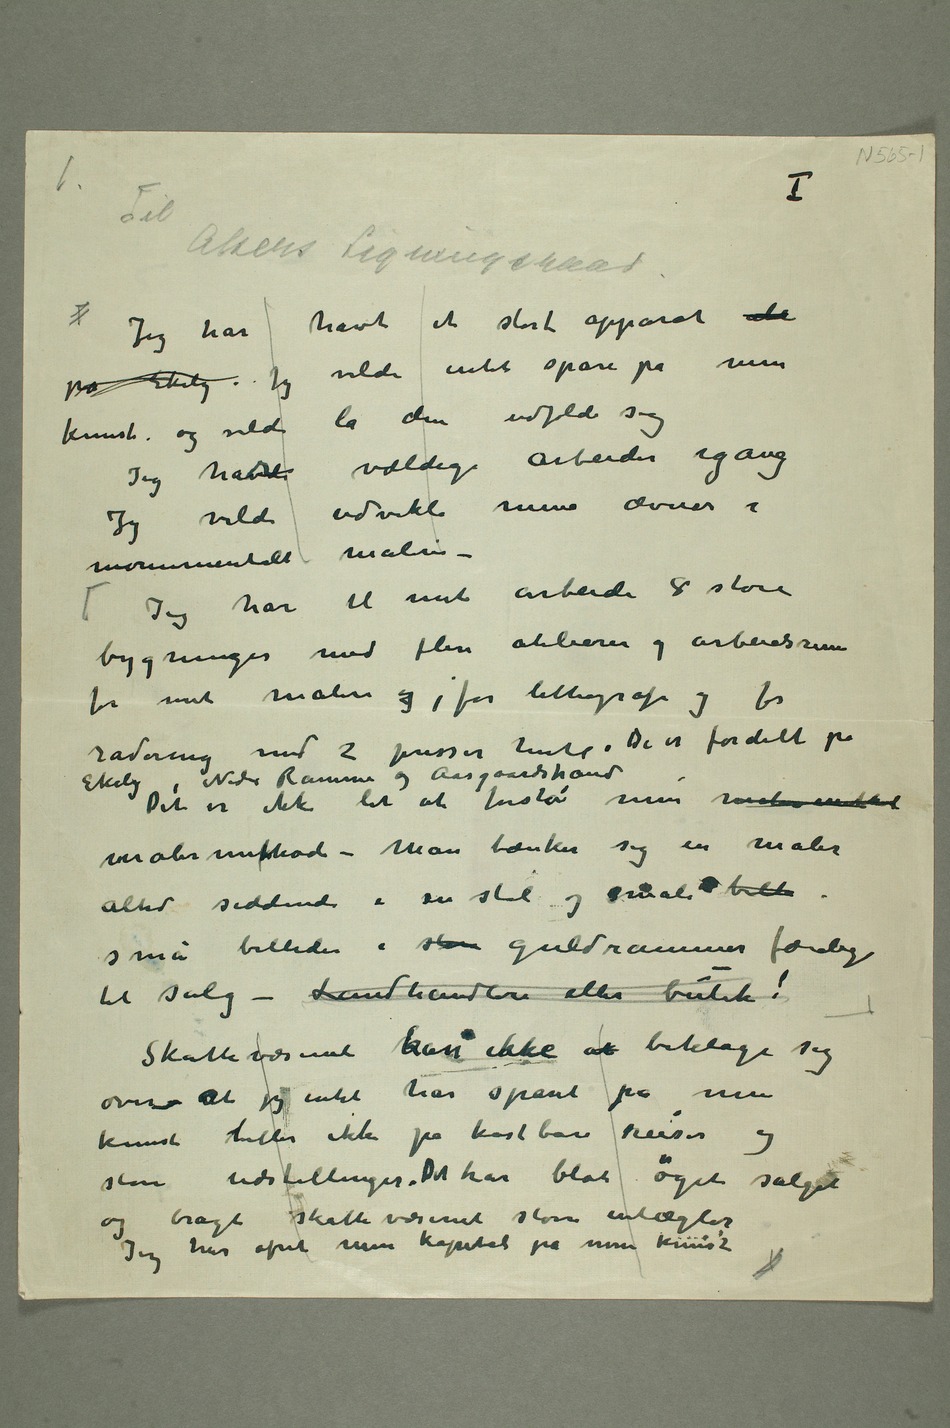 N 565-1
1.
I
Til
Akers Ligningsraad.
Jeg har havt et stort apparat
på Ekely. Jeg vilde intet spare på min
kunst. og vilde la den udfolde sig
Jeg havde vældige arbeider igang
Jeg vilde udvikle mine ævner i
monumentalt maleri –
Jeg har til mit arbeide 8 store
bygninger med flere atelierer og arbeidsrum
for mit maleri og for lithografi og for
radering med 2 presser hertil. De er fordelt på
Ekely, Nedre Ramme og Aasgaardstrand
Det er ikke let at forstå min
malermethode – Man tænker sig en maler
altid siddende i en stol og male billed.
små billeder i store guldrammer færdige
til salg – Landhandleri eller butik!
Skattevæsenet kan ikke at beklage sig
over at jeg intet har sparet på min
kunst heller ikke på kostbare reiser og
store udstillinger. Det har blot öget salget
og bragt skattevæsenet store indtægter
Jeg har ofret min kapital på min kunst